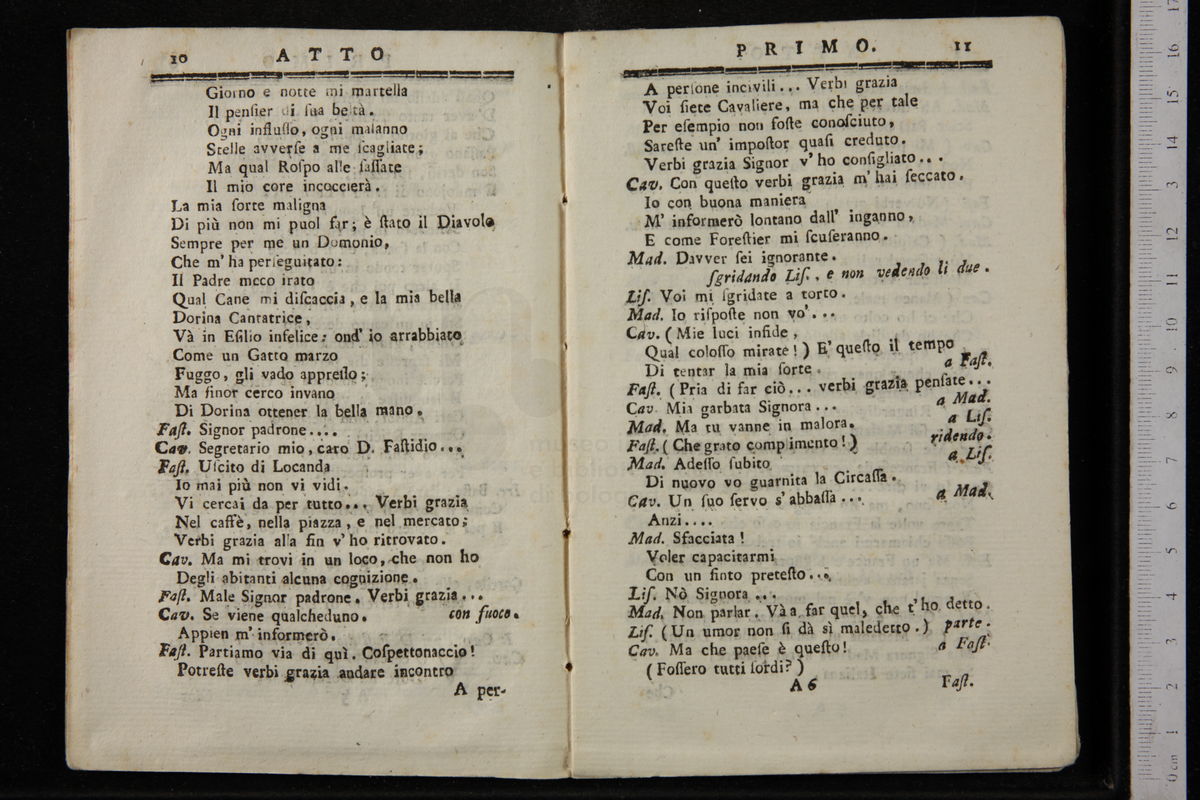 10 ATTO
Giorno e notte mi martella
Il penſier di ſua beltà.
Ogni influſſo, ogni malanno
Stelle avverſe a me ſcagliate;
Ma qual Roſpo alle ſaſſate
Il mio core incoccierà.
La mia ſorte maligna
Di più non mi puol far; è ſtato il Diavolo
Sempre per me un Domonio,
Che m' ha perſeguitato:
Il Padre meco irato
Qual Cane mi diſcaccia, e la mia bella
Dorina Cantatrice,
Và in Eſilio infelice: ond' io arrabbiato
Come un Gatto marzo
Fuggo, gli vado appreſſo;
Ma finor cerco invano
Di Dorina ottener la bella mano.
Faſt. Signor padrone....
Cav. Segretario mio, caro D. Faſtidio...
Faſt. Uſcito di Locanda
Io mai più non vi vidi.
Vi cercai da per tutto... Verbi grazia
Nel caffè, nella piazza, e nel mercato;
Verbi grazia alla fin v' ho ritrovato.
Cav. Ma mi trovi in un loco, che non ho
Degli abitanti alcuna cognizione.
Faſt. Male Signor padrone. Verbi grazia...
Cav. Se viene qualcheduno. con fuoco.
Appien m' informerò.
Faſt. Partiamo via di quì. Coſpettonaccio!
Potreſte verbi grazia andare incontro
A per-
PRIMO. 11
A perſone incivili... Verbi grazia
Voi ſiete Cavaliere, ma che per tale
Per eſempio non foſte conoſciuto,
Sareſte un' impoſtor quaſi creduto.
Verbi grazia Signor v' ho conſigliato...
Cav. Con queſto verbi grazia m' hai ſeccato.
Io con buona maniera
M' informerò lontano dall' inganno,
E come Foreſtier mi ſcuſeranno.
Mad. Davver ſei ignorante.
ſgridando Liſ., e non vedendo li due.
Liſ. Voi mi ſgridate a torto.
Mad. Io riſpoſte non vo'...
Cav. (Mie luci infide,
Qual coloſſo mirate!) E' queſto il tempo
Di tentar la mia ſorte. a Faſt.
Faſt. (Pria di far ciò... verbi grazia penſate...
Cav. Mia garbata Signora... a Mad.
Mad. Ma tu vanne in malora. a Liſ.
Faſt. (Che grato complimento!) ridendo.
Mad. Adeſſo ſubito a Liſ.
Di nuovo vo guarnita la Circaſſa.
Cav. Un ſuo ſervo s' abbaſſa... a Mad.
Anzi....
Mad. Sfacciata!
Voler capacitarmi
Con un finto preteſto...
Liſ. Nò Signora...
Mad. Non parlar. Và a far quel, che t' ho detto.
Liſ. (Un umor non ſi dà sì maledetto.) parte.
Cav. Ma che paeſe è queſto! a Faſt.
(Foſſero tutti ſordi?)
A 6 Faſt.